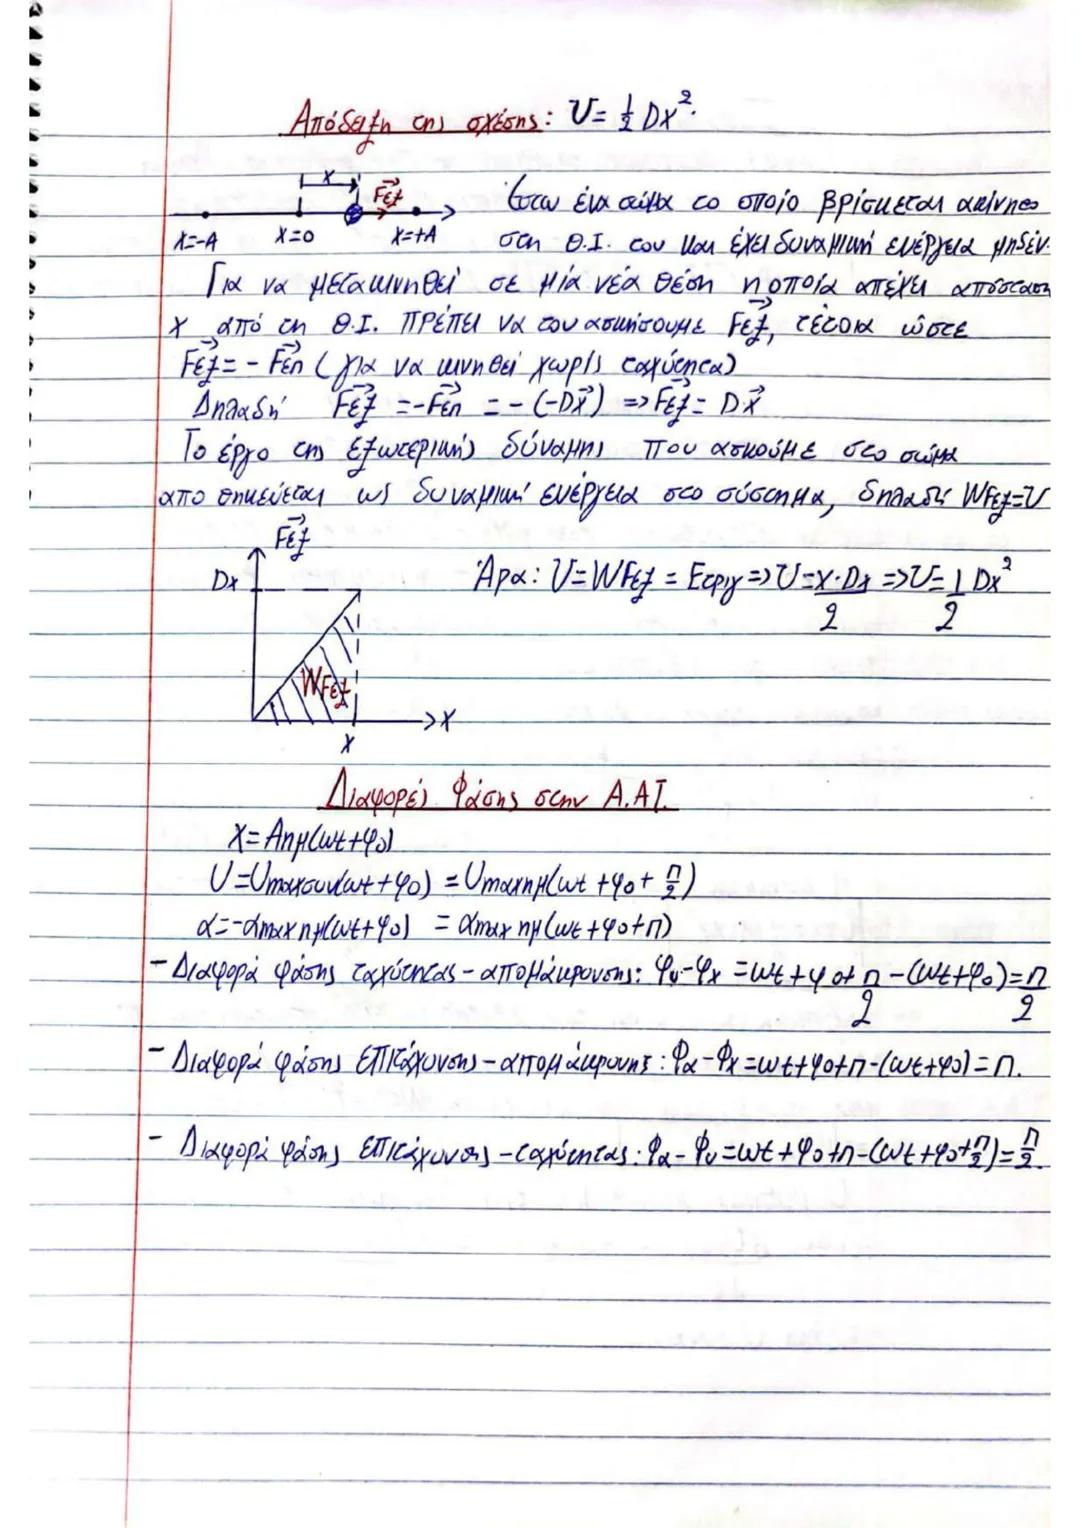 Απόδειξη της σχέσης: U = 1/2 Dx².
x
Fεξ
x=-A x=0 x=+A
Έστω ένα σώμα το οποίο βρίσκεται ακίνητο
στη Θ.Ι. του και έχει δυναμική ενέργεια μηδέν.
Για να μετακινηθεί σε μία νέα θέση η οποία απέχει απόσταση
x από τη Θ.Ι. πρέπει να του ασκήσουμε Fεξ, τέτοια ώστε
Fεξ = - Fεπ (για να κινηθεί χωρίς ταχύτητα)
Δηλαδή Fεξ = -Fεπ = - (-Dx) => Fεξ = Dx
Το έργο της εξωτερικής δύναμης που ασκούμε στο σώμα
αποθηκεύεται ως δυναμική ενέργεια στο σύστημα, δηλαδή WFεξ=U
Fεξ
Dx
Άρα: U=WFεξ = Eτριγ => U = x·Dx/2 => U = 1/2 Dx²
WFεξ
x
x
Διαφορές Φάσης στην Α.Α.Τ.
x = Aημ(ωt+φ0)
U = Umaxσυν(ωt+φ0) = Umaxημ(ωt+φ0+π/2)
α = -αmaxημ(ωt+φ0) = αmaxημ(ωt+φ0+π)
- Διαφορά φάσης ταχύτητας - απομάκρυνσης: φυ-φx = ωt+φ0+π/2-(ωt+φ0) = π/2
- Διαφορά φάσης επιτάχυνσης - απομάκρυνης: φα-φx = ωt+φ0+π-(ωt+φ0) = π.
- Διαφορά φάσης επιτάχυνσης - ταχύτητας: φα-φυ = ωt+φ0+π-(ωt+φ0+π/2) = π/2.